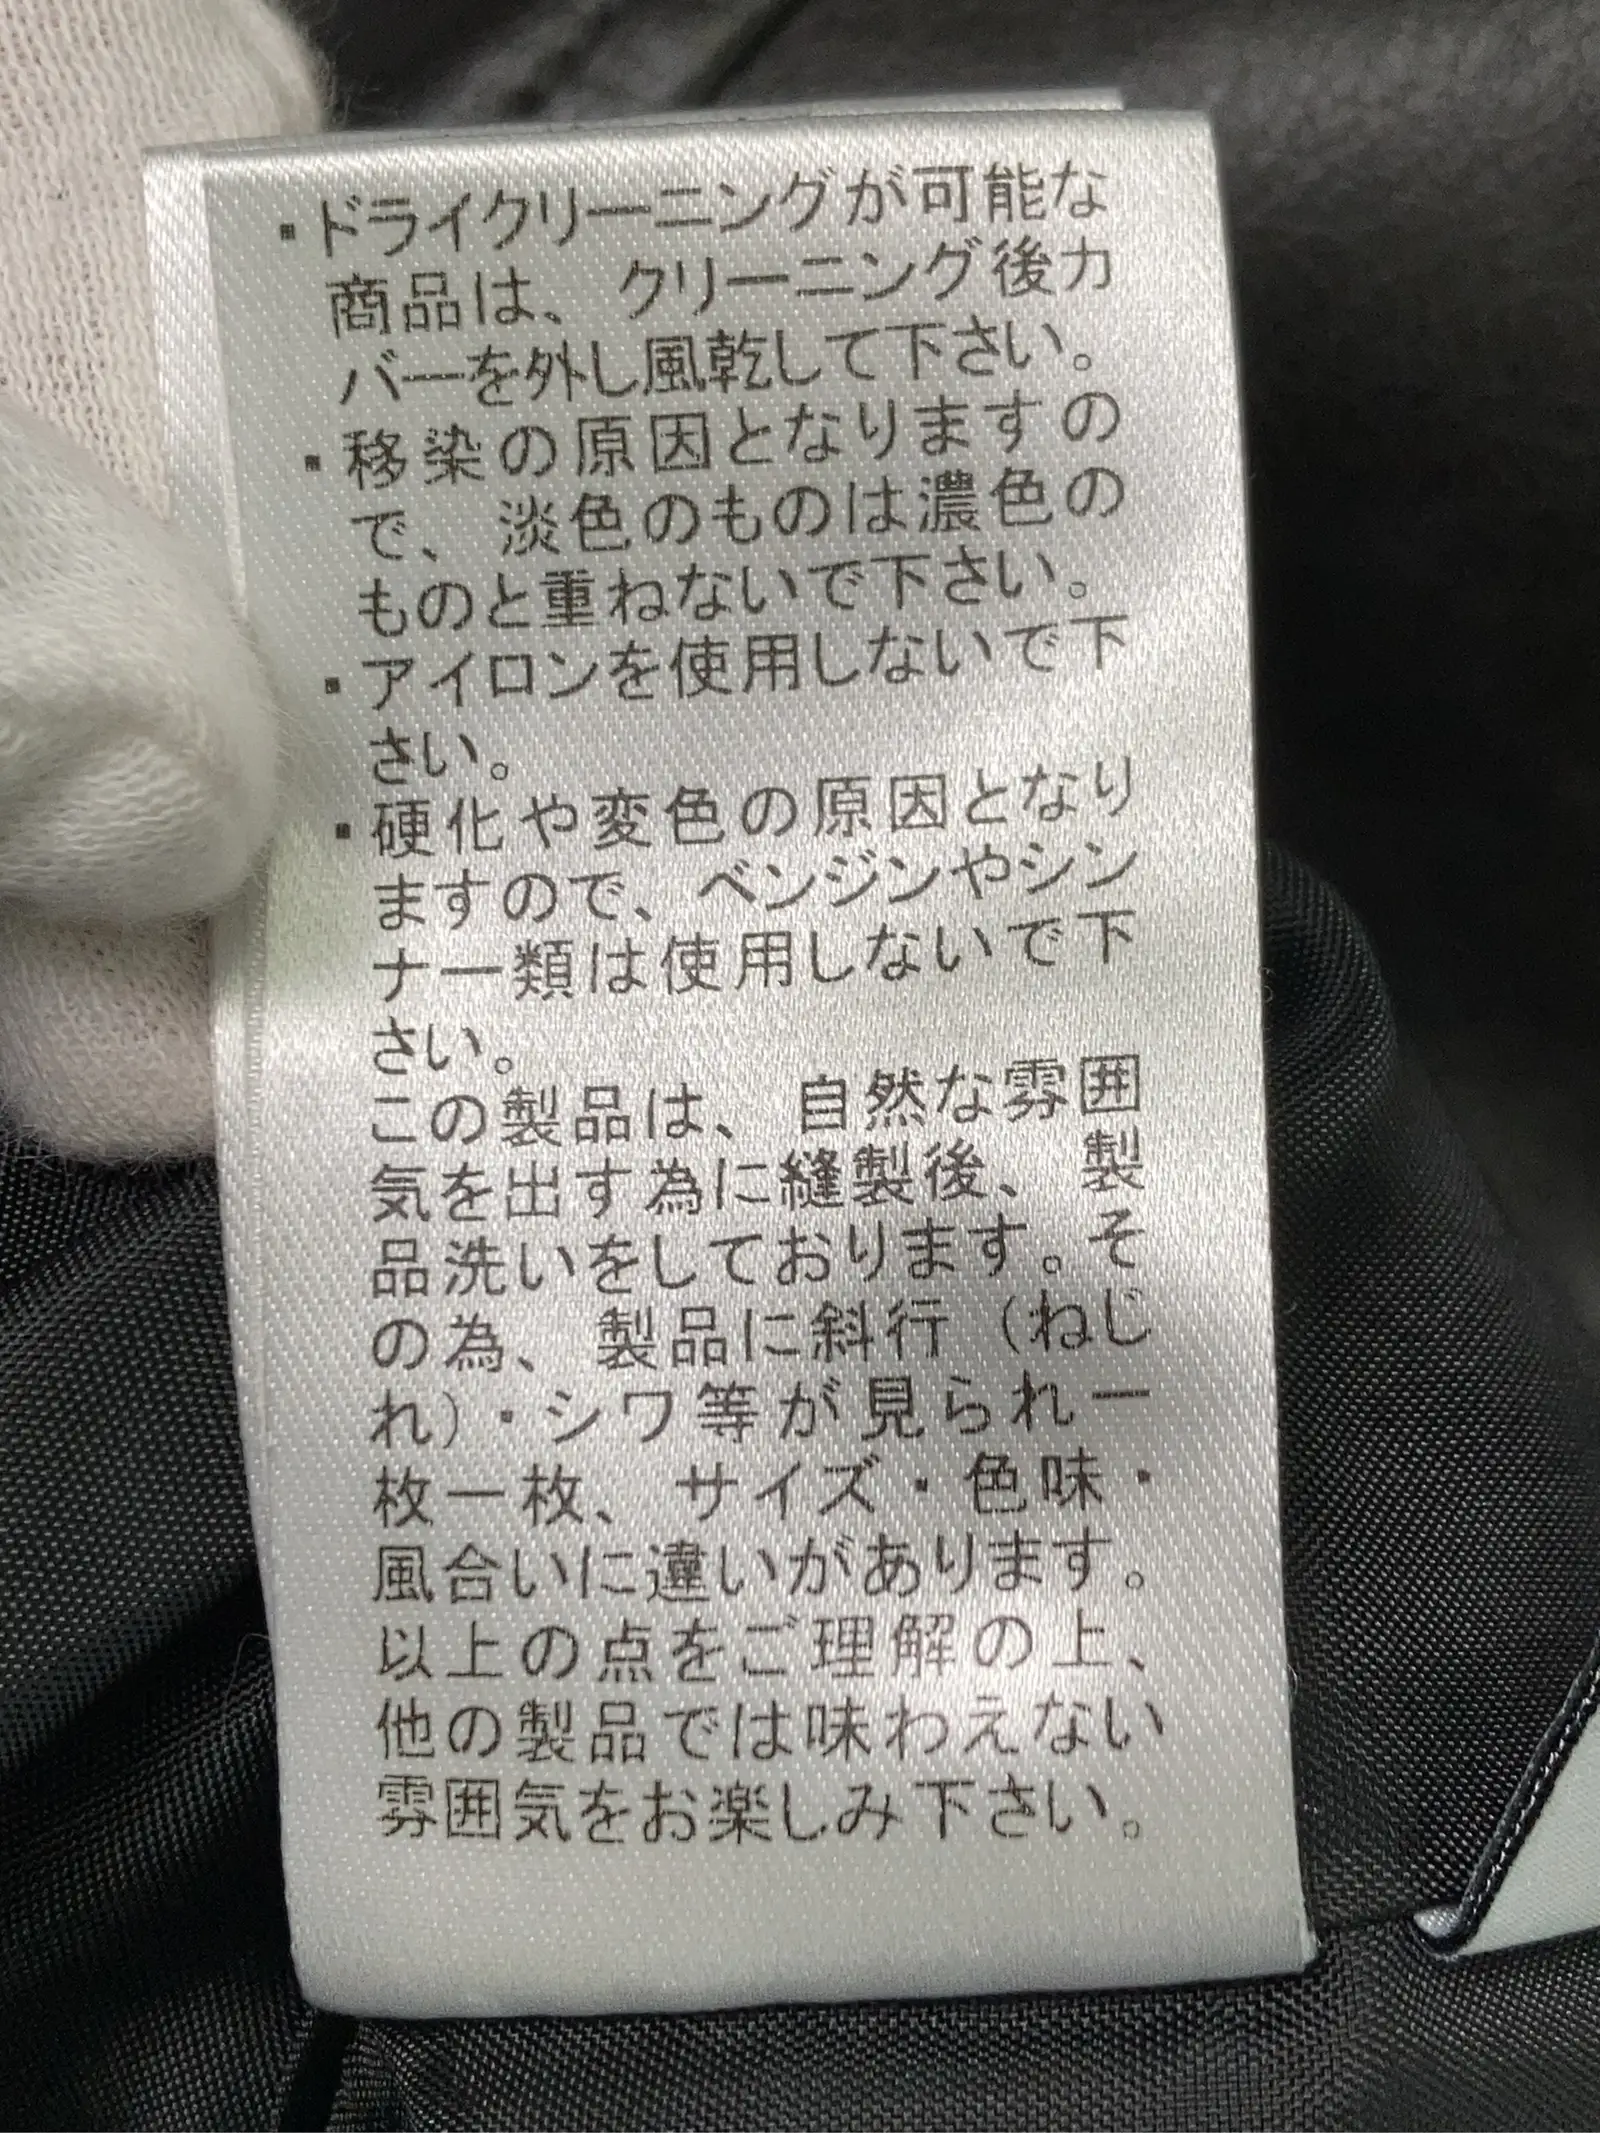 ・ドライクリーニングが可能な
商品は、クリーニング後カ
バーを外し風乾して下さい。
・移染の原因となりますの
で、淡色のものは濃色の
ものと重ねないで下さい。
・アイロンを使用しないで下
さい。
・硬化や変色の原因となり
ますので、ベンジンやシン
ナー類は使用しないで下
さい。
この製品は、自然な雰囲
気を出す為に縫製後、製
品洗いをしております。そ
の為、製品に斜行（ねじ
れ）・シワ等が見られ一
枚一枚、サイズ・色味・
風合いに違いがあります。
以上の点をご理解の上、
他の製品では味わえない
雰囲気をお楽しみ下さい。